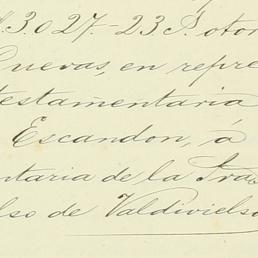 $3.027.-23 P. otor
Cuevas, en repre
testamentaria
Escandon, á
ntaria de la Sra
lso de Valdivielso